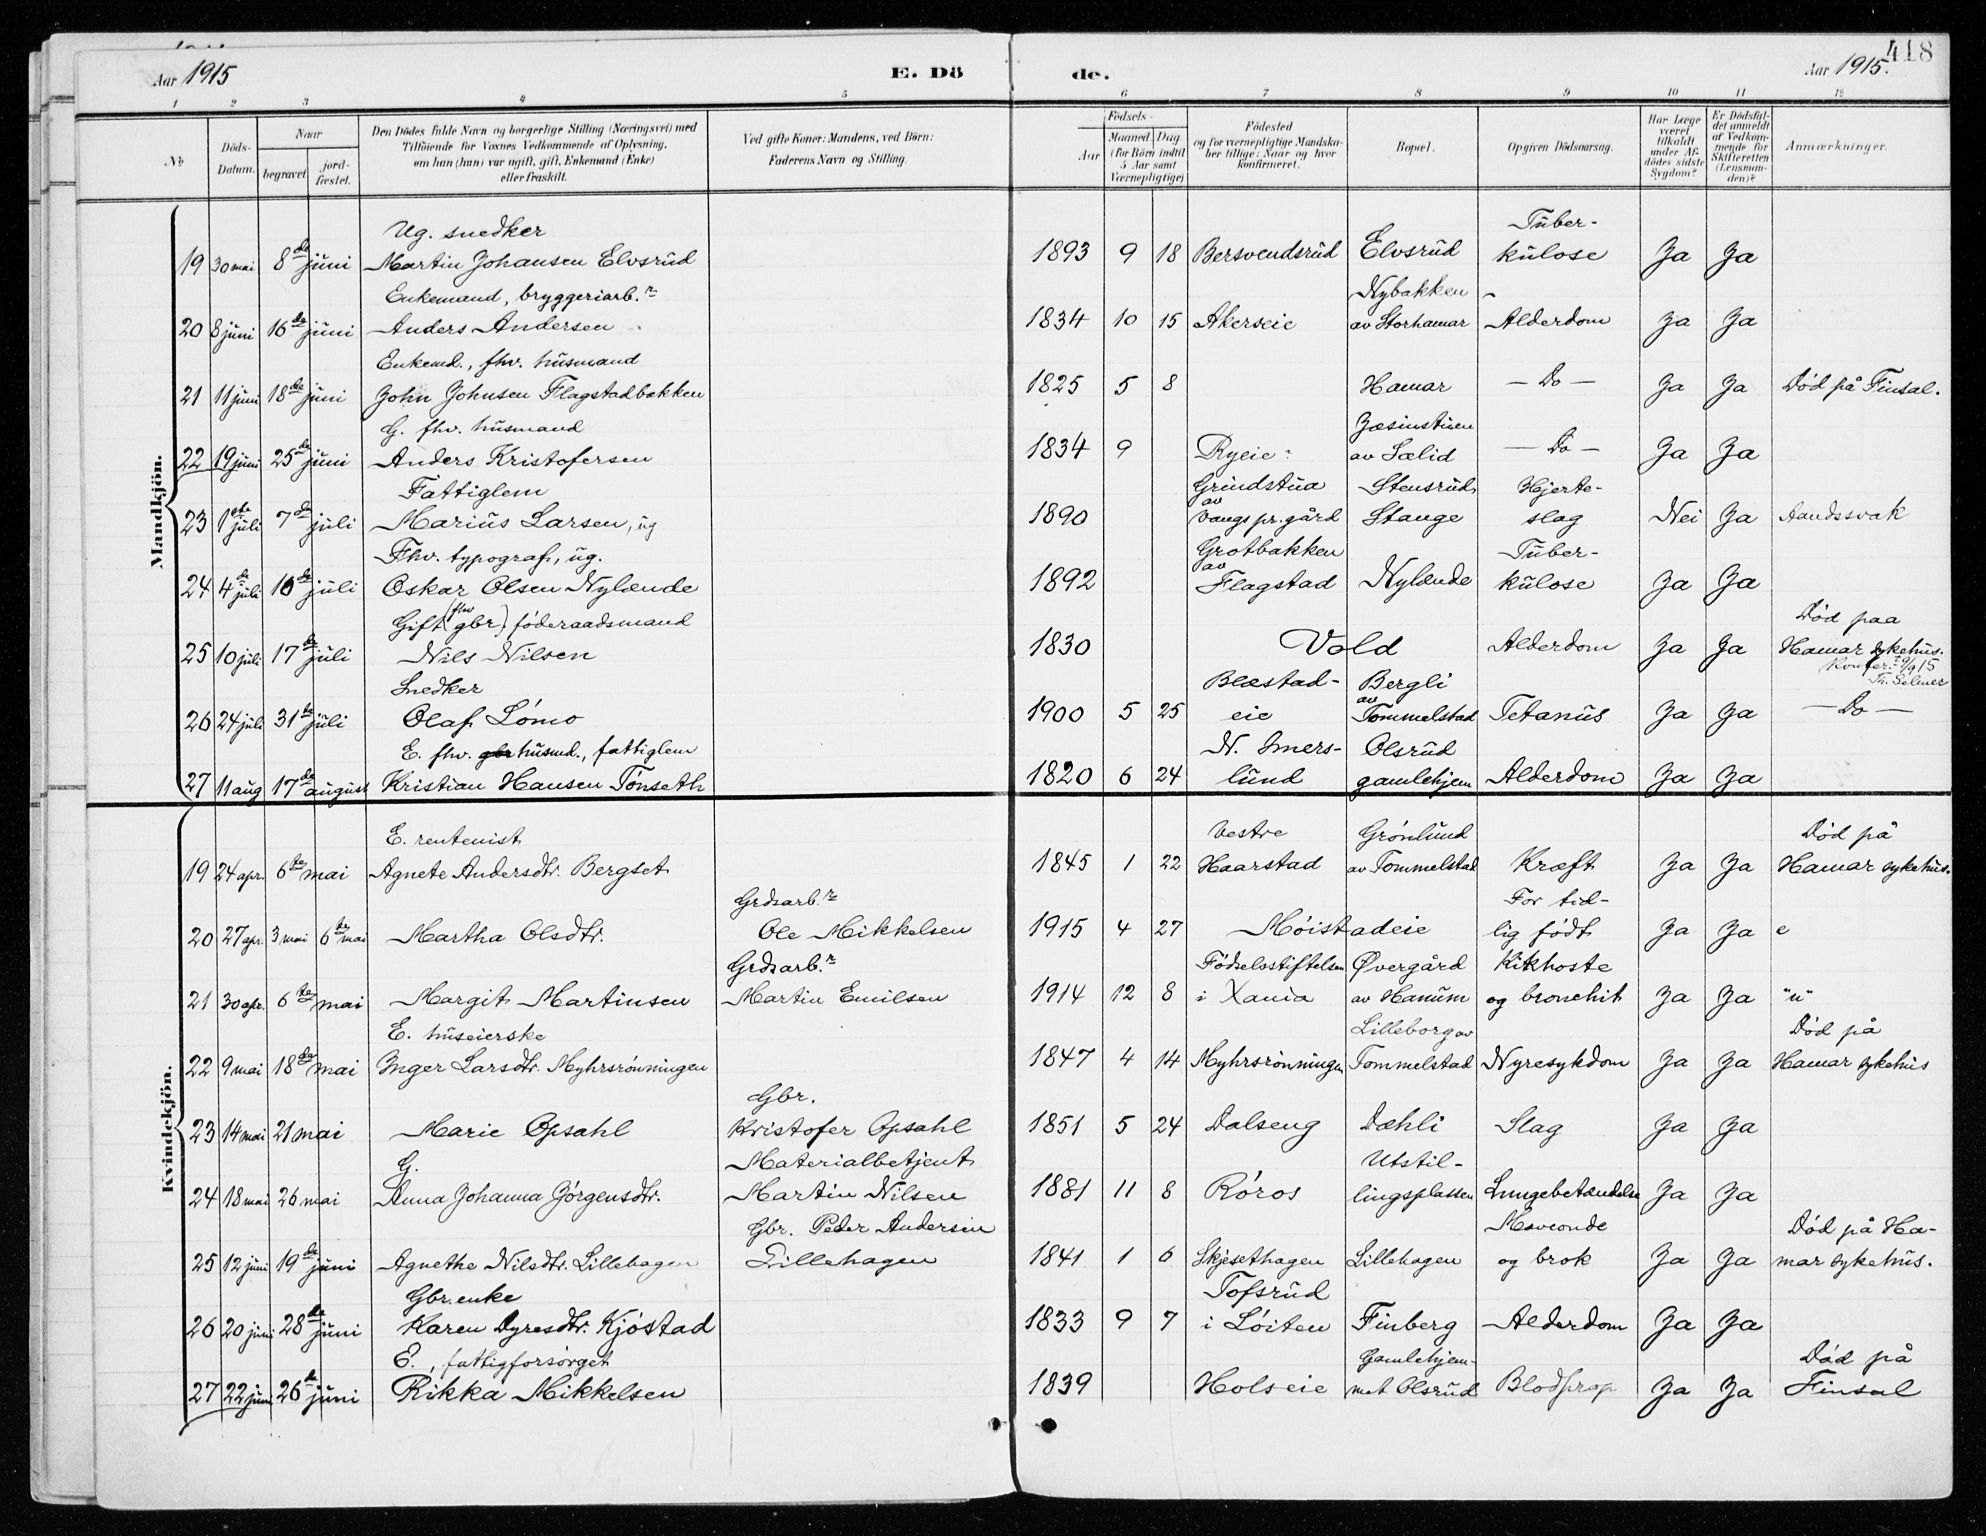 Aar 1915 E. Dö de. Aar 1915. 418
1 2 3 4 5 6 7 8 9 10 11 12
No Döds-Datum. Naar begravet jordfæstet. Den Dödes fulde Navn og borgerlige Stilling (Næringsvei) med Tilföiende for Voxnes Vedkommende af Oplysning, om han (hun) var ugift, gift, Enkemand (Enke) eller fraskilt. Ved gifte Koner: Mandens, ved Börn: Faderens Navn og Stilling. Födsels- Aar Maaned Dag (for Börn indtil 5 Aar samt Værnepligtige) Födested og for værnepligtige Mandskaber tillige: Naar og hvor konfirmeret. Bopæl. Opgiven Dödsaarsag. Har Læge været tilkaldt under Afdödes sidste Sygdom? Er Dödsfaldet anmeldt af Vedkommende for Skifteretten (Lensmanden)? Anmærkninger.
Mandkjön.
Ug. snedker Tuber-
19 30 mai 8de juni Martin Johansen Elvsrud 1893 9 18 Bersvendsrud Elvsrud kulose Ja Ja
Enkemand, bryggeriarb.r Nybakken
20 8 juni 16de juni Anders Andersen 1834 10 15 Akerseie av Storhamar Alderdom Ja Ja
Enkemd., fhv. husmand
21 11 juni 18de juni John Johnsen Flagstadbakken 1825 5 8 Hamar — Do — Ja Ja Död på Finsal.
G. fhv. husmand
22 19 juni 25de juni Anders Kristofersen 1834 9 Ryeie av Sælid — Do — Ja Ja
Fattiglem Grindstua Stensrud, Hjerte-
23 1ste juli 7de juli Marius Larsen, ug 1890 av Vangs pr.gård Stange slag Nei Ja Aandssvak
Fhv. typograf, ug. Grotbakken Tuber-
24 4de juli 10de juli Oskar Olsen Nylænde 1892 av Flagstad Nylænde kulose Ja Ja
Gift (fhv gbr) föderaadsmand Död paa
25 10 juli 17de juli Nils Nilsen 1830 Vold Alderdom Ja Ja Hamar sykehus.
Snedker Blæstad- Bergli Konfer.
26 24 juli 31te juli Olaf Lömo 1900 5 25 eie av Tommelstad Tetanus Ja Ja — Do —
E. fhv. gbr husmd., fattiglem N. Imers- Olsrud
27 11 aug 17de august Kristian Hansen Tönseth 1820 6 24 lund gamlehjem Alderdom Ja Ja
Kvindekjön.
E. rentenist Vestre Grönlund Död på
19 24 apr. 6te mai Agnete Andersdtr. Bergset 1845 1 22 Haarstad av Tommelstad Kræft Ja Ja Hamar sykehus.
Grdsarb.r For tid-
20 27 apr. 3 mai 6te mai Martha Olsdtr. Ole Mikkelsen 1915 4 27 Möistadeie lig född Ja Ja e
Grdsarb.r Födselsstiftelsen Övergård Kikhoste
21 30 apr. 6te mai Margit Martinsen Martin Emilsen 1914 12 8 i Xania av Hanum og bronchit Ja Ja "u"
E. huseierske Lilleborg av Död på
22 9 mai 18de mai Inger Larsdtr. Myhrsrönningen 1847 4 14 Myhrsrönningen Tommelstad Nyresykdom Ja Ja Hamar sykehus
Gbr.
23 14 mai 21 mai Marie Opsahl Kristofer Opsahl 1851 5 24 Dalseng Dæhli Slag Ja Ja
G. Materialbetjent Utstil-
24 18 mai 26 mai Anna Johanna Jörgensdtr. Martin Nilsen 1881 11 8 Röros lingsplassen Lungebetændelse Ja Ja
Gbr. Peder Andersen Maveonde Död på Ha-
25 12 juni 19de juni Agnethe Nilsdtr. Lillehagen Lillehagen 1841 1 6 Skjesethagen Lillehagen og brok Ja Ja mar sykehus.
Gbr.enke Tofsrud
26 20 juni 28de juni Karen Dyresdtr. Kjöstad 1833 9 7 i Löiten Finberg Alderdom Ja Ja
E., fattigforsörget Gamlehjem- Död på
27 22 juni 26de juni Rikka Mikkelsen 1839 Holseie met Olsrud Blodprop Ja Ja Finsal